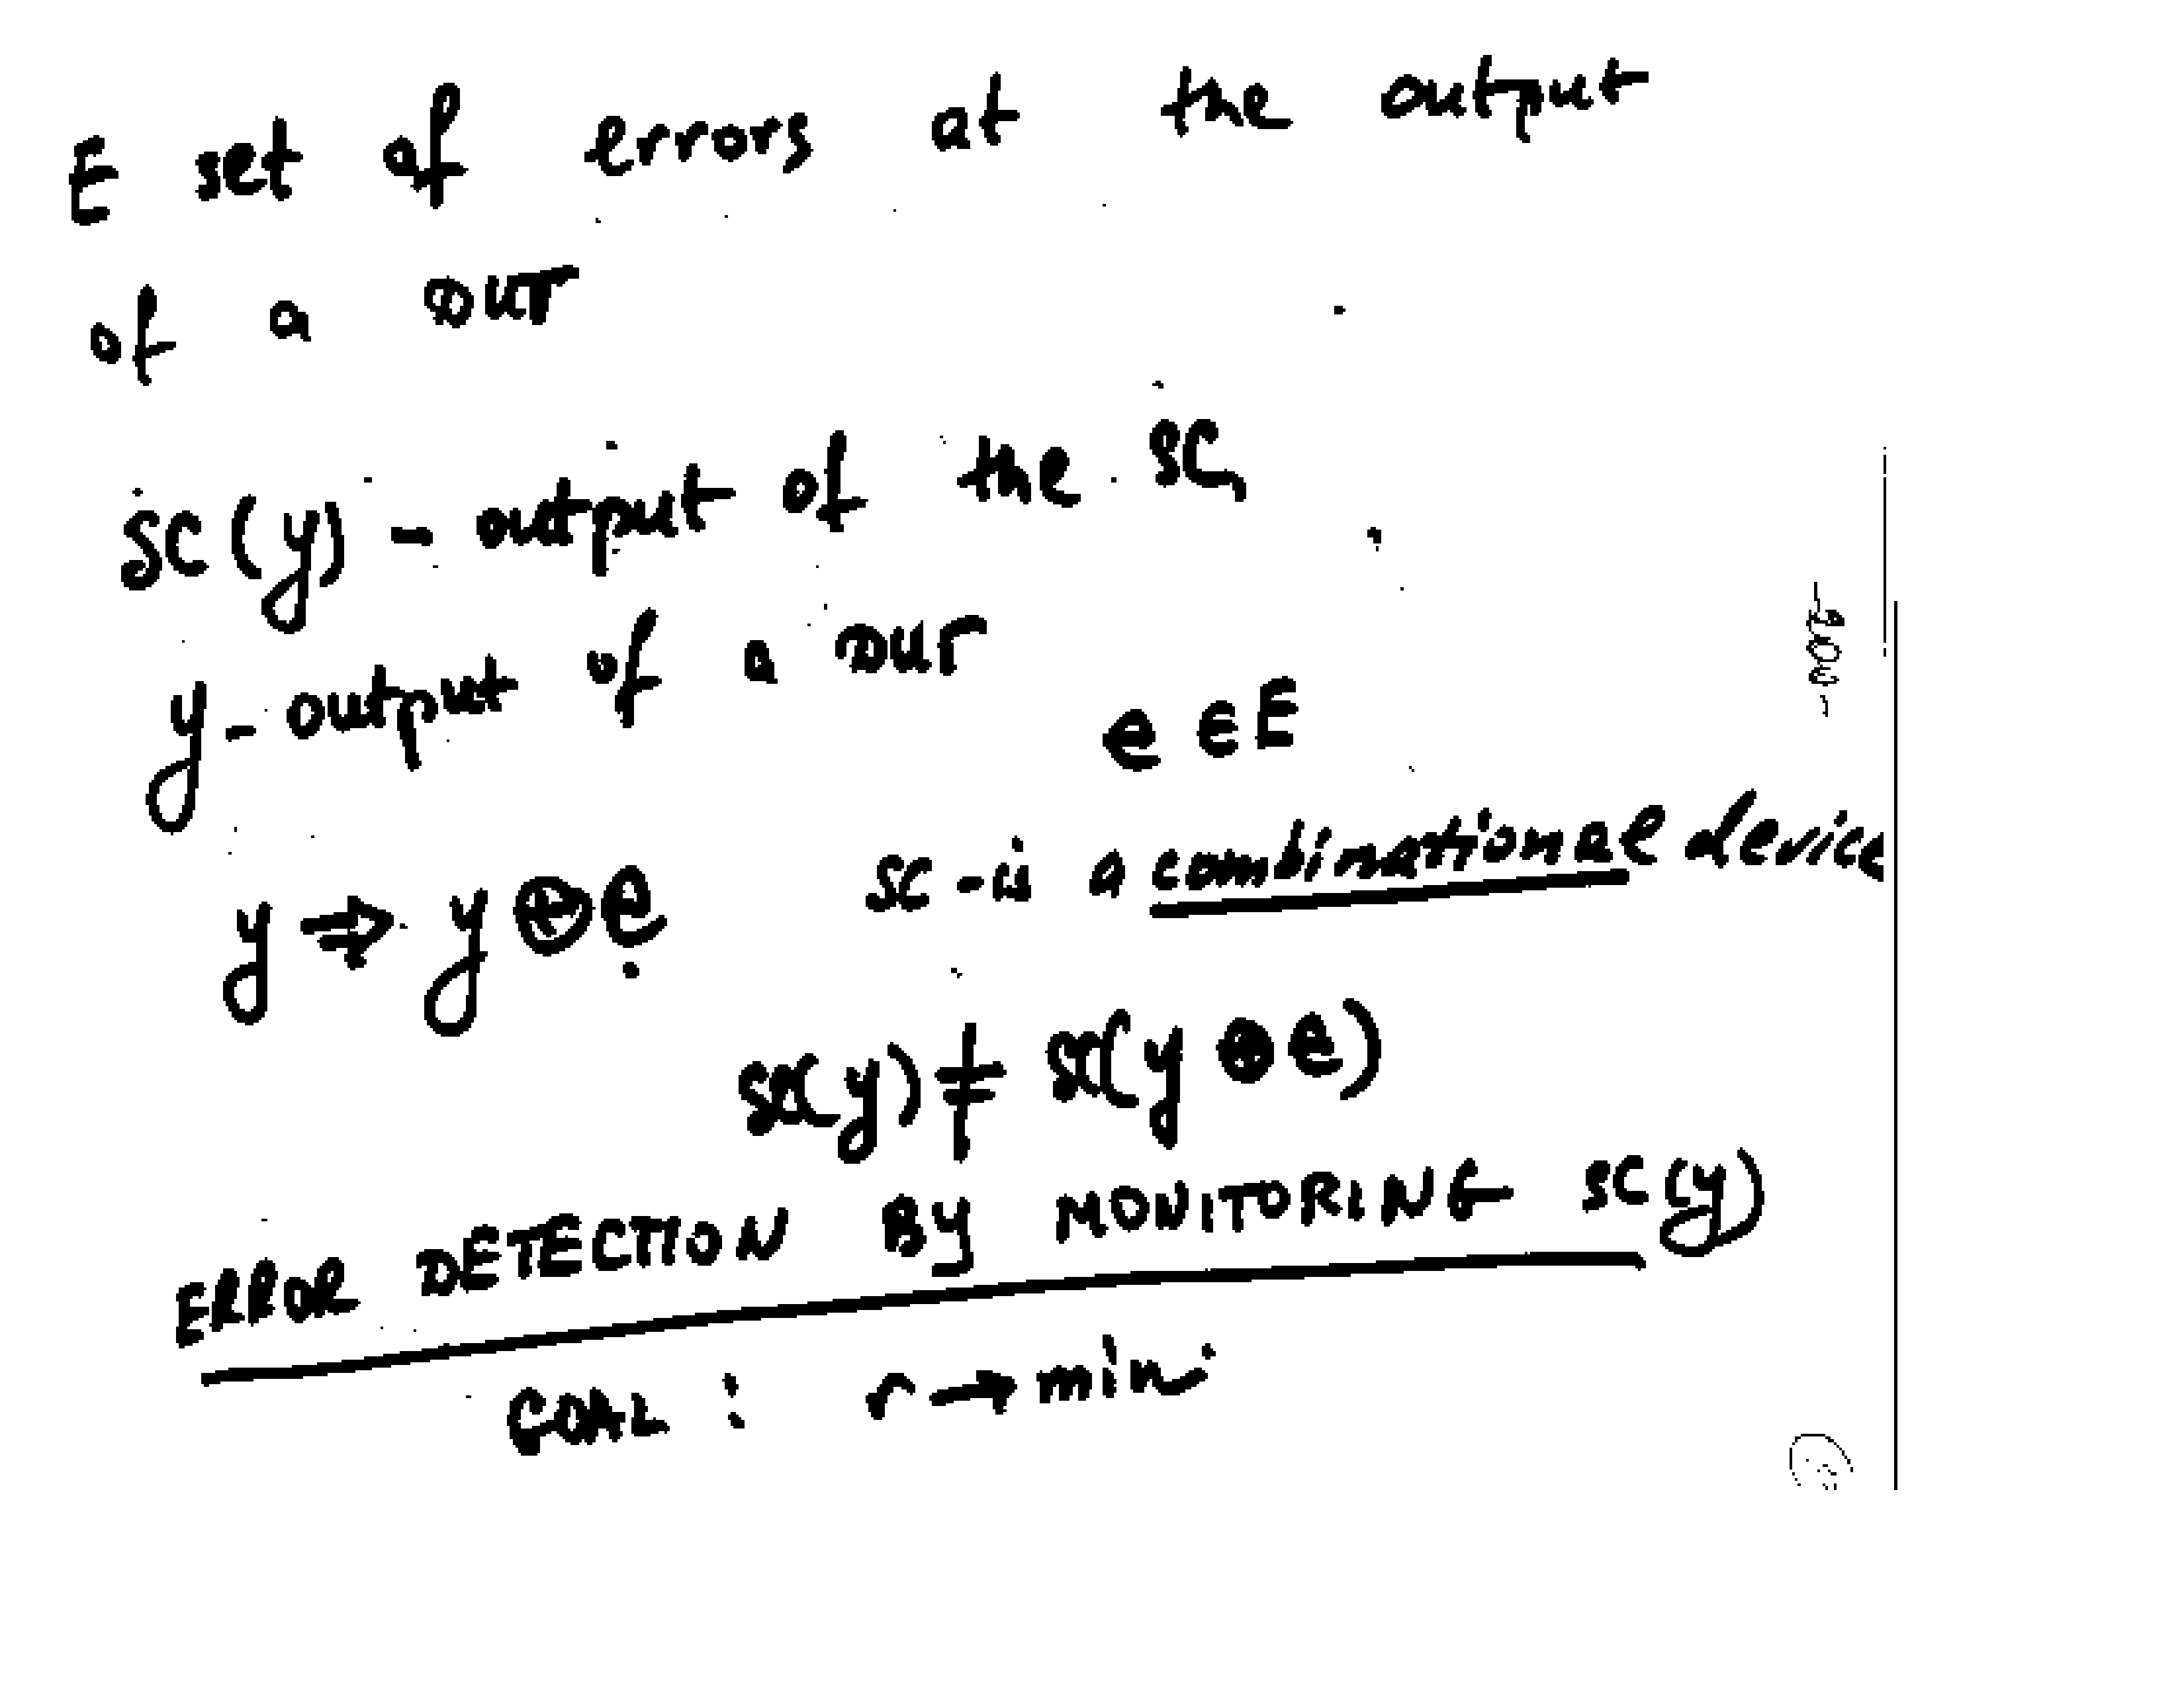 E set of errors at the output
of a DUT
SC(y) - output of the SC,
y - output of a DUT
e ∈ E
SC - is a combinational device
y ⇒ y ⊕ e
SC(y) ≠ SC(y ⊕ e)
ERROR DETECTION BY MONITORING SC(y)
GOAL : r → min